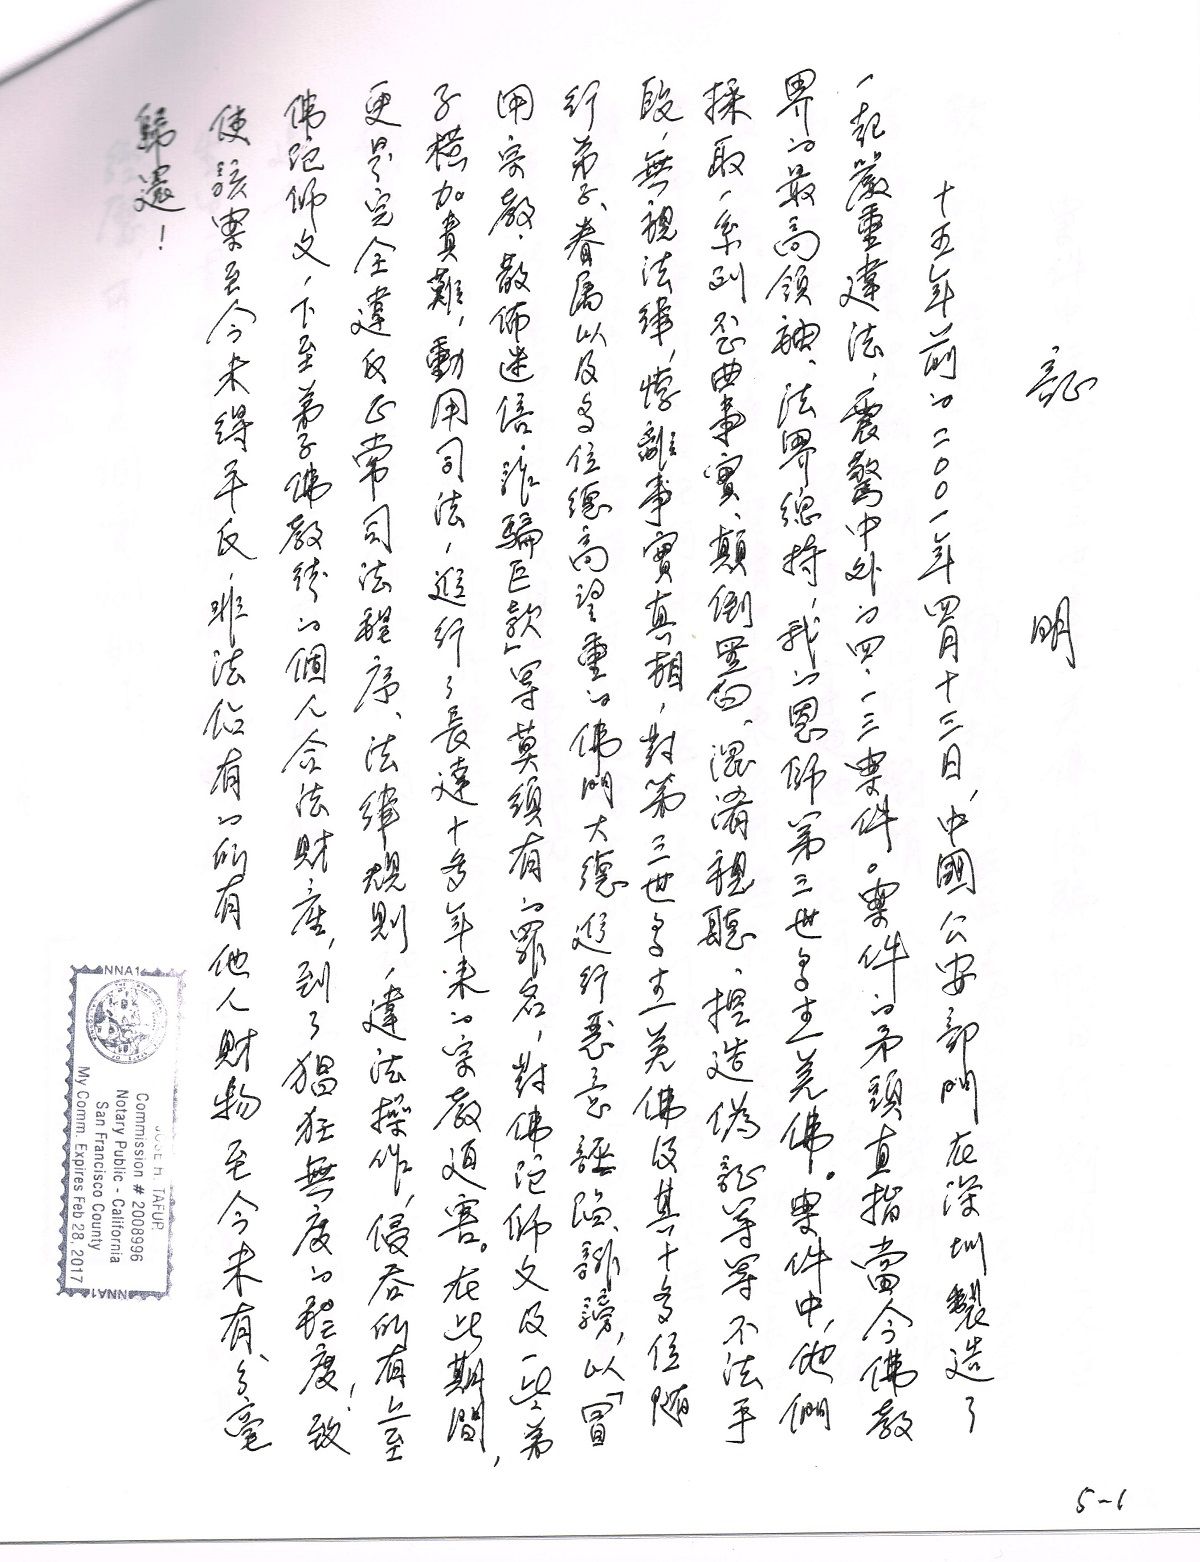 證 明
十五年前的二00一年四月十三日，中國公安部門在深圳製造了
一起嚴重違法、震驚中外的四·一三案件。案件的矛頭直指當今佛教
界的最高領袖、法界總持，我的恩師第三世多杰羌佛。案件中，他們
採取一系列歪曲事實、顛倒黑白、混淆視聽、捏造偽證等等不法手
段，無視法律，悖離事實真相，對第三世多杰羌佛及其十多位隨
行弟子、眷屬以及多位德高望重的佛門大德進行惡意誣陷、誹謗，以「冒
用宗教、散佈迷信、詐騙巨款」等莫須有的罪名，對佛陀師父及一些弟
子橫加責難，動用司法，進行了長達十多年來的宗教迫害。在此期間，
更是完全違反正常司法程序、法律規則，違法操作，侵吞所有上至
佛陀師父，下至弟子佛教徒的個人合法財產，到了猖狂無度的程度，致
使該案至今未得平反，非法佔有的所有他人財物至今未有分毫
歸還！
NNA1
JOSE H. TAFUR
Commission # 2008996
Notary Public - California
San Francisco County
My Comm. Expires Feb 28, 2017
NNA1
5-1